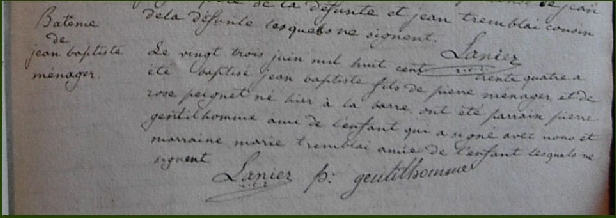 de la défunte et jean tremblai cousin
de la défunte lesquels ne signent.
Lanier
Batême
de
jean baptiste
menager.
Le vingt trois juin mil huit cent trente quatre a
été baptisé jean baptiste fils de pierre menager et de
rose peignet né hier à la barre. ont été parrain pierre
gentilhomme ami de l'enfant qui a signé avec nous et
marraine marie tremblai amie de l'enfant lesquels ne
signent
Lanier p: gentilhomme